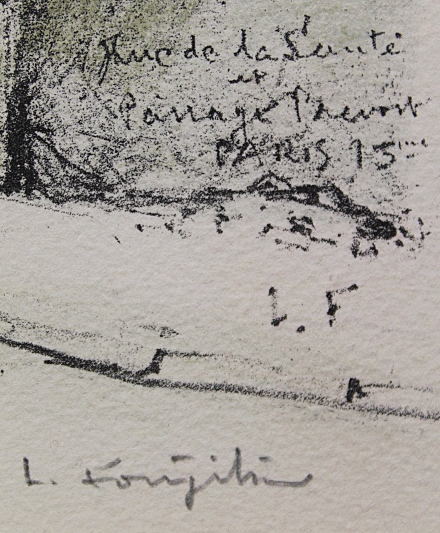 Rue de la Santé
et
Passage Prevost
PARIS 13ème
L. F
L. Foujita